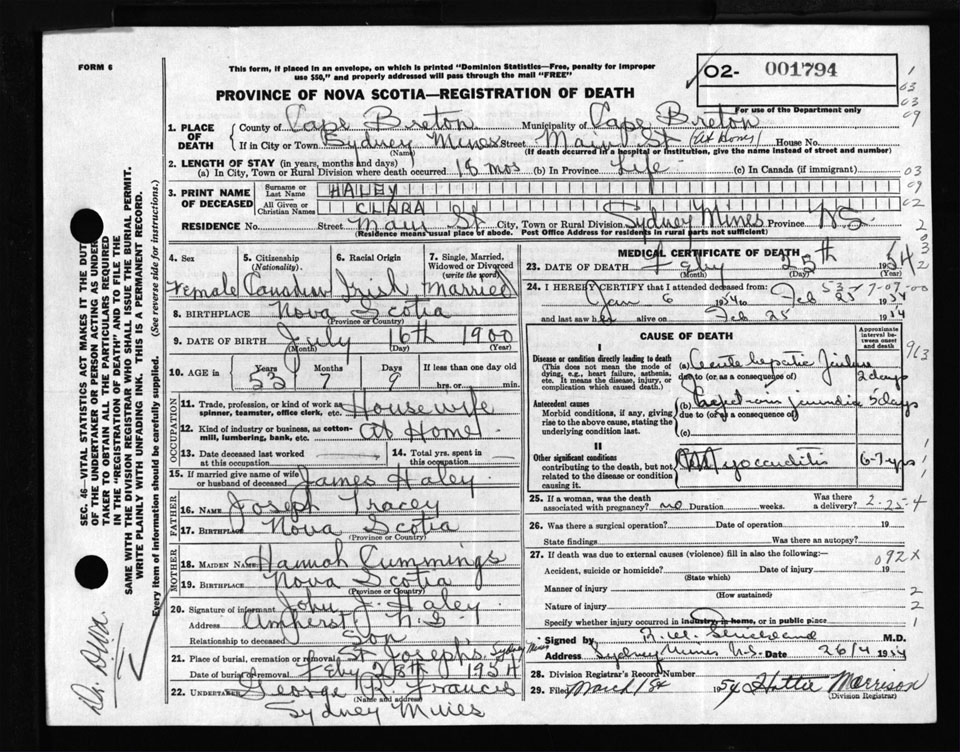 FORM 6
This form, if placed in an envelope, on which is printed "Dominion Statistics—Free, penalty for improper
use $50," and properly addressed will pass through the mail "FREE"
PROVINCE OF NOVA SCOTIA—REGISTRATION OF DEATH
02- 001794
For use of the Department only
1. PLACE OF DEATH
County of Cape Breton Municipality of Cape Breton
If in City or Town Sydney Mines Street Main St (At Home) House No.
(Name) (If death occurred in a hospital or institution, give the name instead of street and number)
2. LENGTH OF STAY (in years, months and days)
(a) In City, Town or Rural Division where death occurred. 18 mos (b) In Province Life (c) In Canada (if immigrant)
3. PRINT NAME OF DECEASED
Surname or Last Name HALEY
All Given or Christian Names CLARA
RESIDENCE No. Street Main St City, Town or Rural Division Sydney Mines Province N.S.
(Residence means usual place of abode. Post Office Address for residents in rural parts not sufficient)
4. Sex Female
5. Citizenship (Nationality). Canadian
6. Racial Origin Irish
7. Single, Married, Widowed or Divorced (write the word) Married
8. BIRTHPLACE Nova Scotia
(Province or Country)
9. DATE OF BIRTH July 16th 1900
(Month) (Day) (Year)
10. AGE in Years 53 Months 7 Days 9 If less than one day old
hrs. or min.
OCCUPATION
11. Trade, profession, or kind of work as spinner, teamster, office clerk, etc. Housewife
12. Kind of industry or business, as cotton-mill, lumbering, bank, etc. At Home
13. Date deceased last worked at this occupation
14. Total yrs. spent in this occupation
15. If married give name of wife or husband of deceased James Haley
FATHER
16. NAME Joseph Tracey
17. BIRTHPLACE Nova Scotia
(Province or Country)
MOTHER
18. MAIDEN NAME Hannah Cummings
19. BIRTHPLACE Nova Scotia
(Province or Country)
20. Signature of informant John J. Haley
Address Amherst N.S.
Relationship to deceased Son
21. Place of burial, cremation or removal St Josephs, Sydney Mines
Date of burial or removal Feby 28th 1954
22. UNDERTAKER George R. Francis
(Name and address)
Sydney Mines
MEDICAL CERTIFICATE OF DEATH
23. DATE OF DEATH Feby 25th 1954
(Month) (Day) (Year)
24. I HEREBY CERTIFY that I attended deceased from:
Jan 6 1954 to Feb 25 1954
and last saw her alive on Feb 25 1954
CAUSE OF DEATH
Approximate interval between onset and death
I
Disease or condition directly leading to death
(This does not mean the mode of dying, e.g., heart failure, asthenia, etc. It means the disease, injury, or complication which caused death.)
(a) Acute hepatic 2 days
due to (or as a consequence of)
Antecedent causes
Morbid conditions, if any, giving rise to the above cause, stating the underlying condition last.
(b) jaundice 5 days
due to (or as a consequence of)
(c)
II
Other significant conditions
contributing to the death, but not related to the disease or condition causing it.
Myocarditis 6-7 yrs
25. If a woman, was the death associated with pregnancy? no Duration weeks. Was there a delivery? 2-25-4
26. Was there a surgical operation? Date of operation 19
State findings Was there an autopsy?
27. If death was due to external causes (violence) fill in also the following:—
Accident, suicide or homicide? Date of injury 19
(State which)
Manner of injury
(How sustained)
Nature of injury
Specify whether injury occurred in industry, in home, or in public place
Signed by M.D.
Address Sydney Mines N.S. Date 26/4 1954
28. Division Registrar's Record Number
29. Filed March 1st 1954 Hattie Morrison
(Division Registrar)
SEC. 46—VITAL STATISTICS ACT MAKES IT THE DUTY
OF THE UNDERTAKER OR PERSON ACTING AS UNDER-
TAKER TO OBTAIN ALL THE PARTICULARS REQUIRED
IN THE "REGISTRATION OF DEATH" AND TO FILE THE
SAME WITH THE DIVISION REGISTRAR WHO SHALL ISSUE THE BURIAL PERMIT.
WRITE PLAINLY WITH UNFADING INK. THIS IS A PERMANENT RECORD.
Every item of information should be carefully supplied. (See reverse side for instructions.)
1
03
03
09
03
09
02
2
963
1
092X
2
2
1